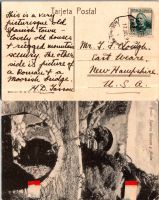 Tarjeta Postal
This is a very
picturesque old
Spanish town
lovely old houses
+ rugged mountain
scenery. The other
side is picture of
a Roman & a
Moorish bridge.
H.D.
Mr. F. F. Clough,
East Weare,
New Hampshire,
U. S. A.